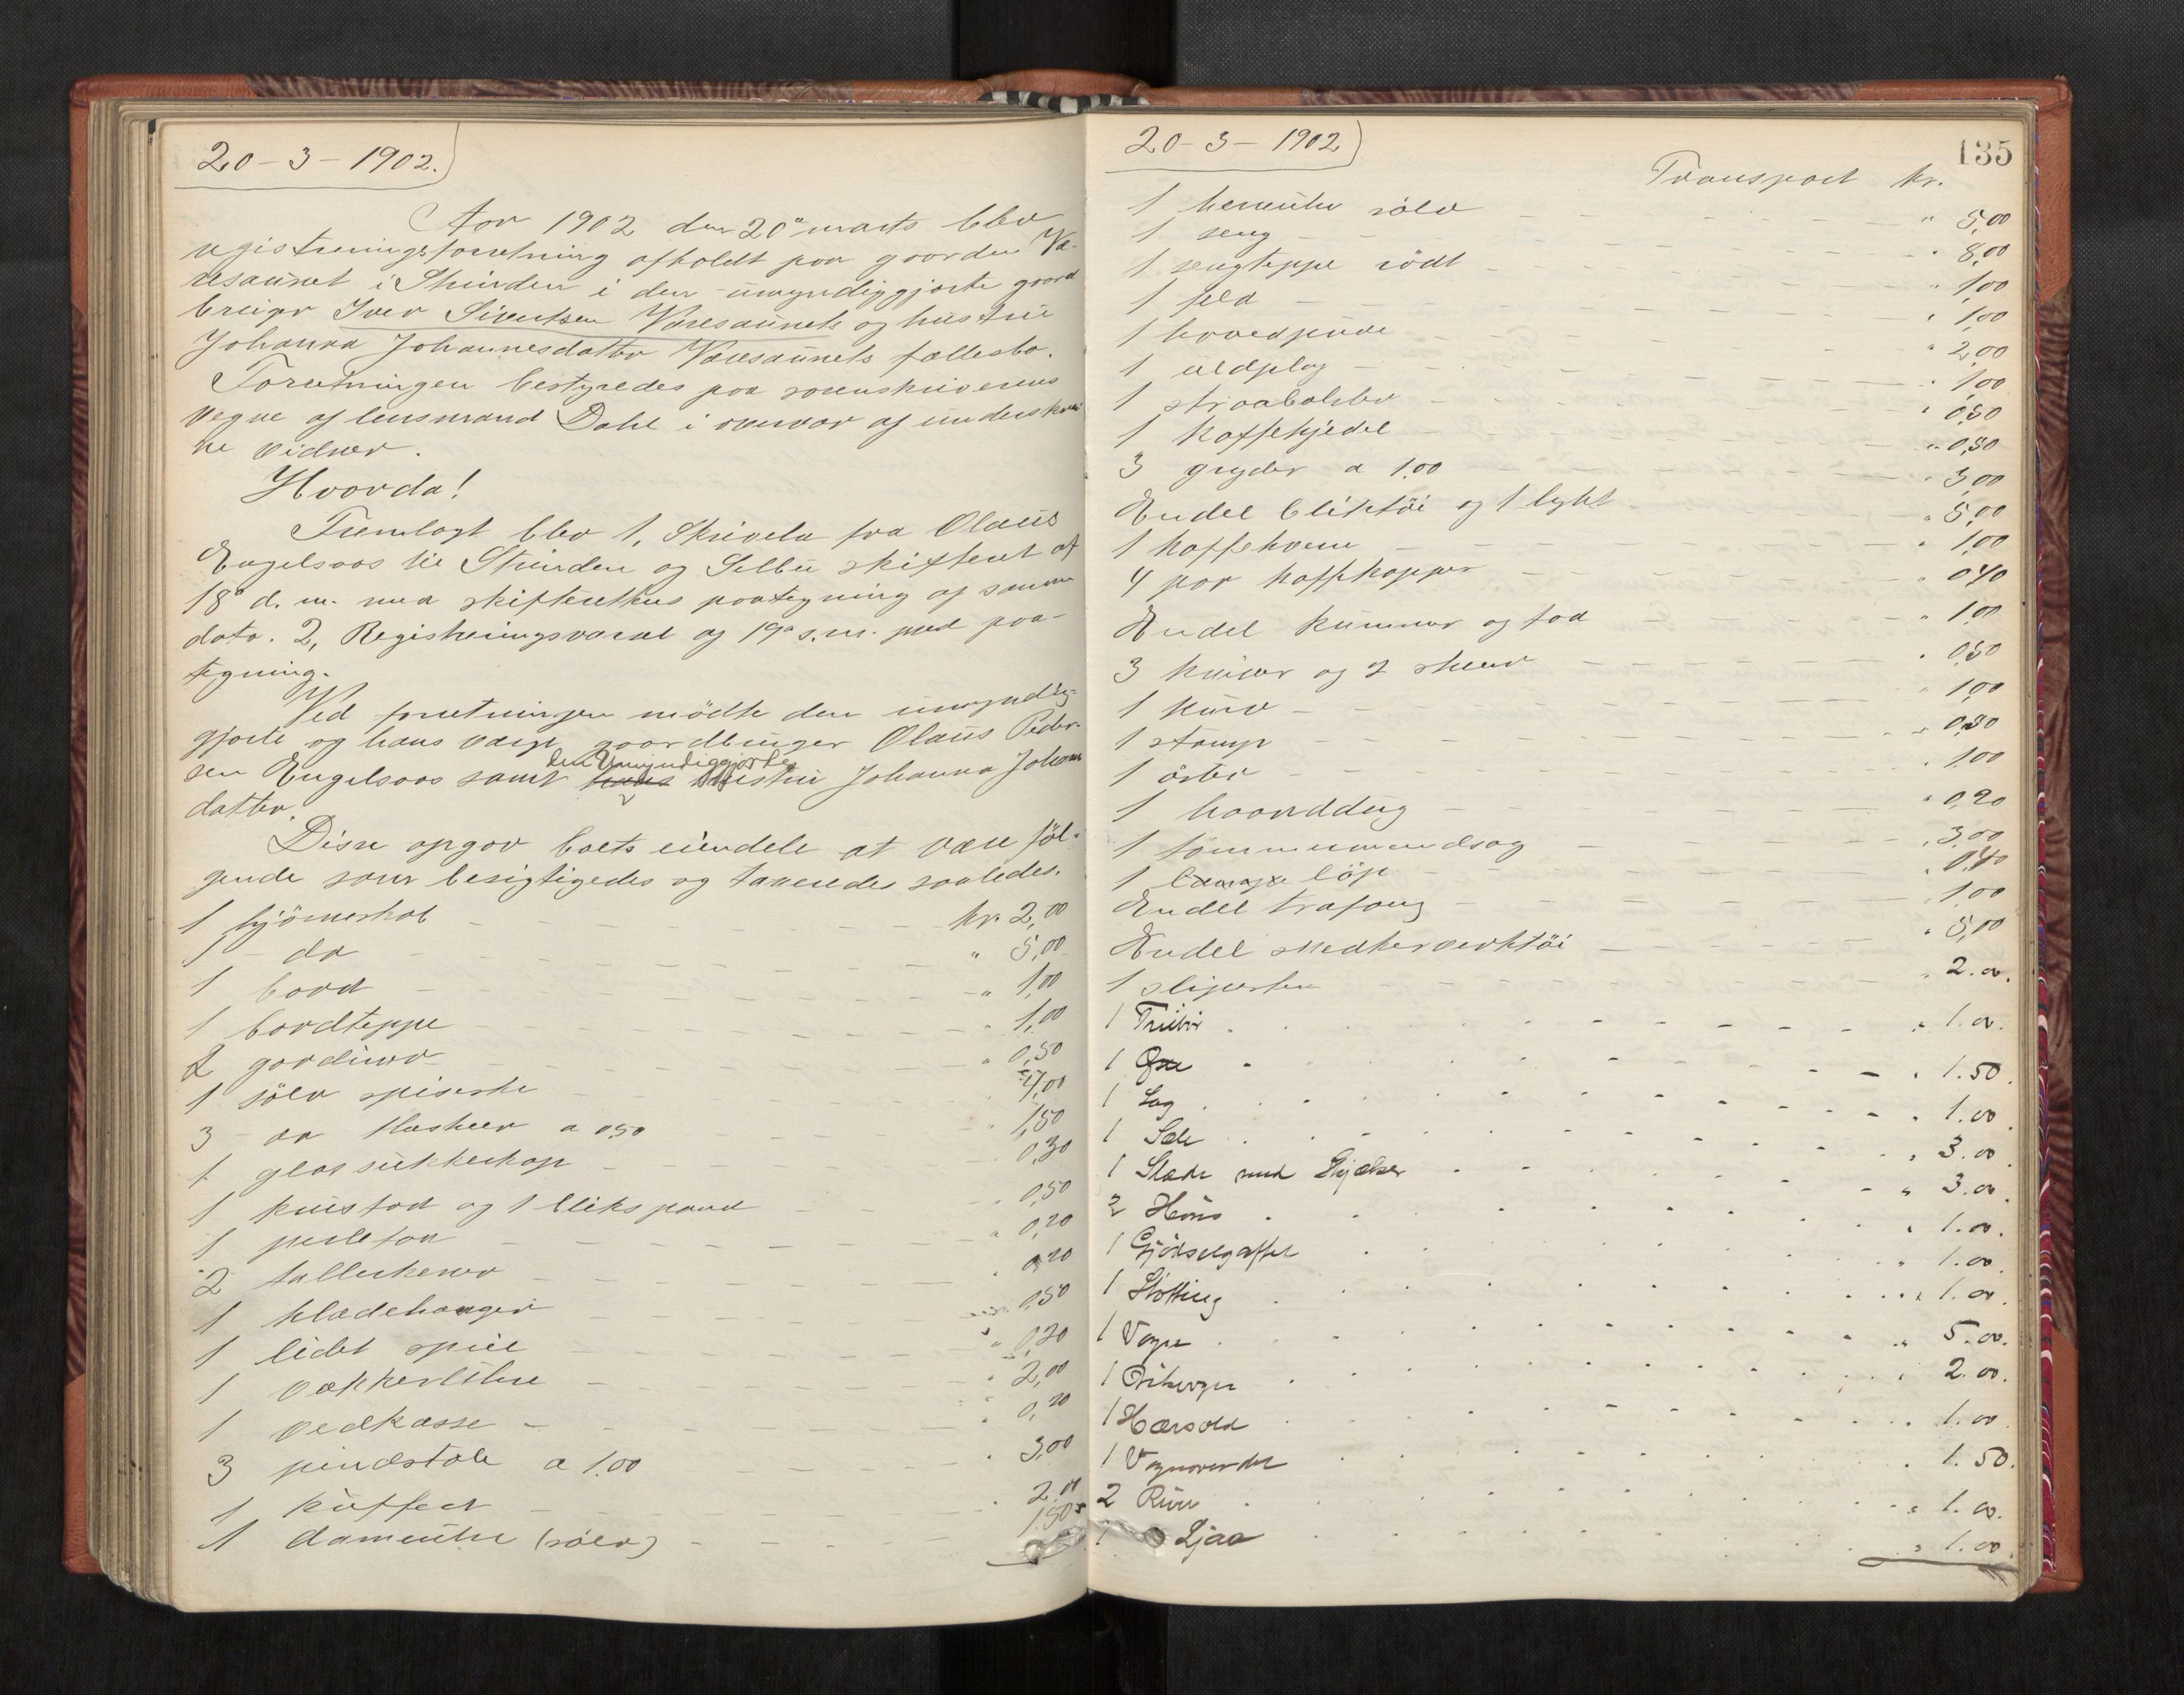 20-3-1902.
Aar 1902 den 20de marts blev
registreringsforretning afholdt paa gaarden Væ-
resaunet i Strinden i den umyndiggjorte gaard
bruger Iver Sivertsen Væresaunets og hustru
Johanna Johannesdatter Væresaunets fællesbo.
Forretningen bestyredes paa sorenskriverens
vegne af lensmand Dahl i overvær af underskrev
ne vidner.
Hvorda!
Fremlagt blev 1, Skrivelse fra Olaus
Engelsaas til Strinden og Selbu skifteret af
18de d. m. med skifterettens paategning af samme
dato. 2, Registreringsvarsel af 19de s.m. med paa-
tegning.
Ved forretningen mödte den umyndig-
gjorte og hans værge gaardbruger Olaus Peder-
sen Engelsaas samt hans den Umyndiggjortes hustru Johanna Johannes
datter.
Disse opgav boets eiendele at være föl-
gende som besigtigedes og taxeredes saaledes.
1 hjörneskab kr. 2,00
1 - do " 5,00
1 bord " 1,00
1 bordteppe " 1,00
2 gardiner " 0,50
1 sölv spiseske " 4,00
3 do theskeer a 0,50 " 1,50
1 glas sukkerkop 0,30
1 krusfad og 1 blikspand " 0,50
1 perlefad " 0,20
2 tallerkener " 0,20
1 klædehænger 0,50
1 lidet speil " 0,20
1 vækkerklokke " 2,00
1 vedkasse " 0,20
3 pindstole a 1.00 " 3,00
1 kuffert " 2,00
1 dameuhr (sölv) 1,50
20-3-1902
135
Transport kr.
1 herreuhr sölv " 5,00
1 seng " 8,00
1 sengteppe rödt " 1,00
1 feld " 1,00
1 hovedpude " 2,00
1 uldplag " 1,00
1 straabolster " 0,50
1 kaffekjedel " 0,50
3 gryder a 1.00 " 3,00
Endel bliktöi og 1 lygte " 5,00
1 kaffekvern " 1,00
4 par kaffekopper " 0,40
Endel kummer og fad " 1,00
3 kniver og 2 skeer " 0,50
1 kurv " 1,00
1 stamp " 0,50
1 öster " 1,00
1 haanddug " 0,20
1 tömmermandsag " 3,00
1 lampe löp " 0,40
Endel trafang " 1,00
Endel snedkerverktöi " 5,00
1 slipesten " 2.00.
1 Trillebör " 1.00.
1 Öxe " 1.50.
1 Sag " 1.00
1 Sele " 3.00
1 Slæde med Skjækker " 3.00.
2 Höns " 1.00.
1 Gjödselgaffel " 1.00.
1 Stötting " 1.00.
1 Vogn " 5.00.
1 Arbeidsvogn 2.00.
1 Hærsold " 1.00
1 Vognvender " 1.50.
2 River " 1.00.
1 Ljaa " 1.00